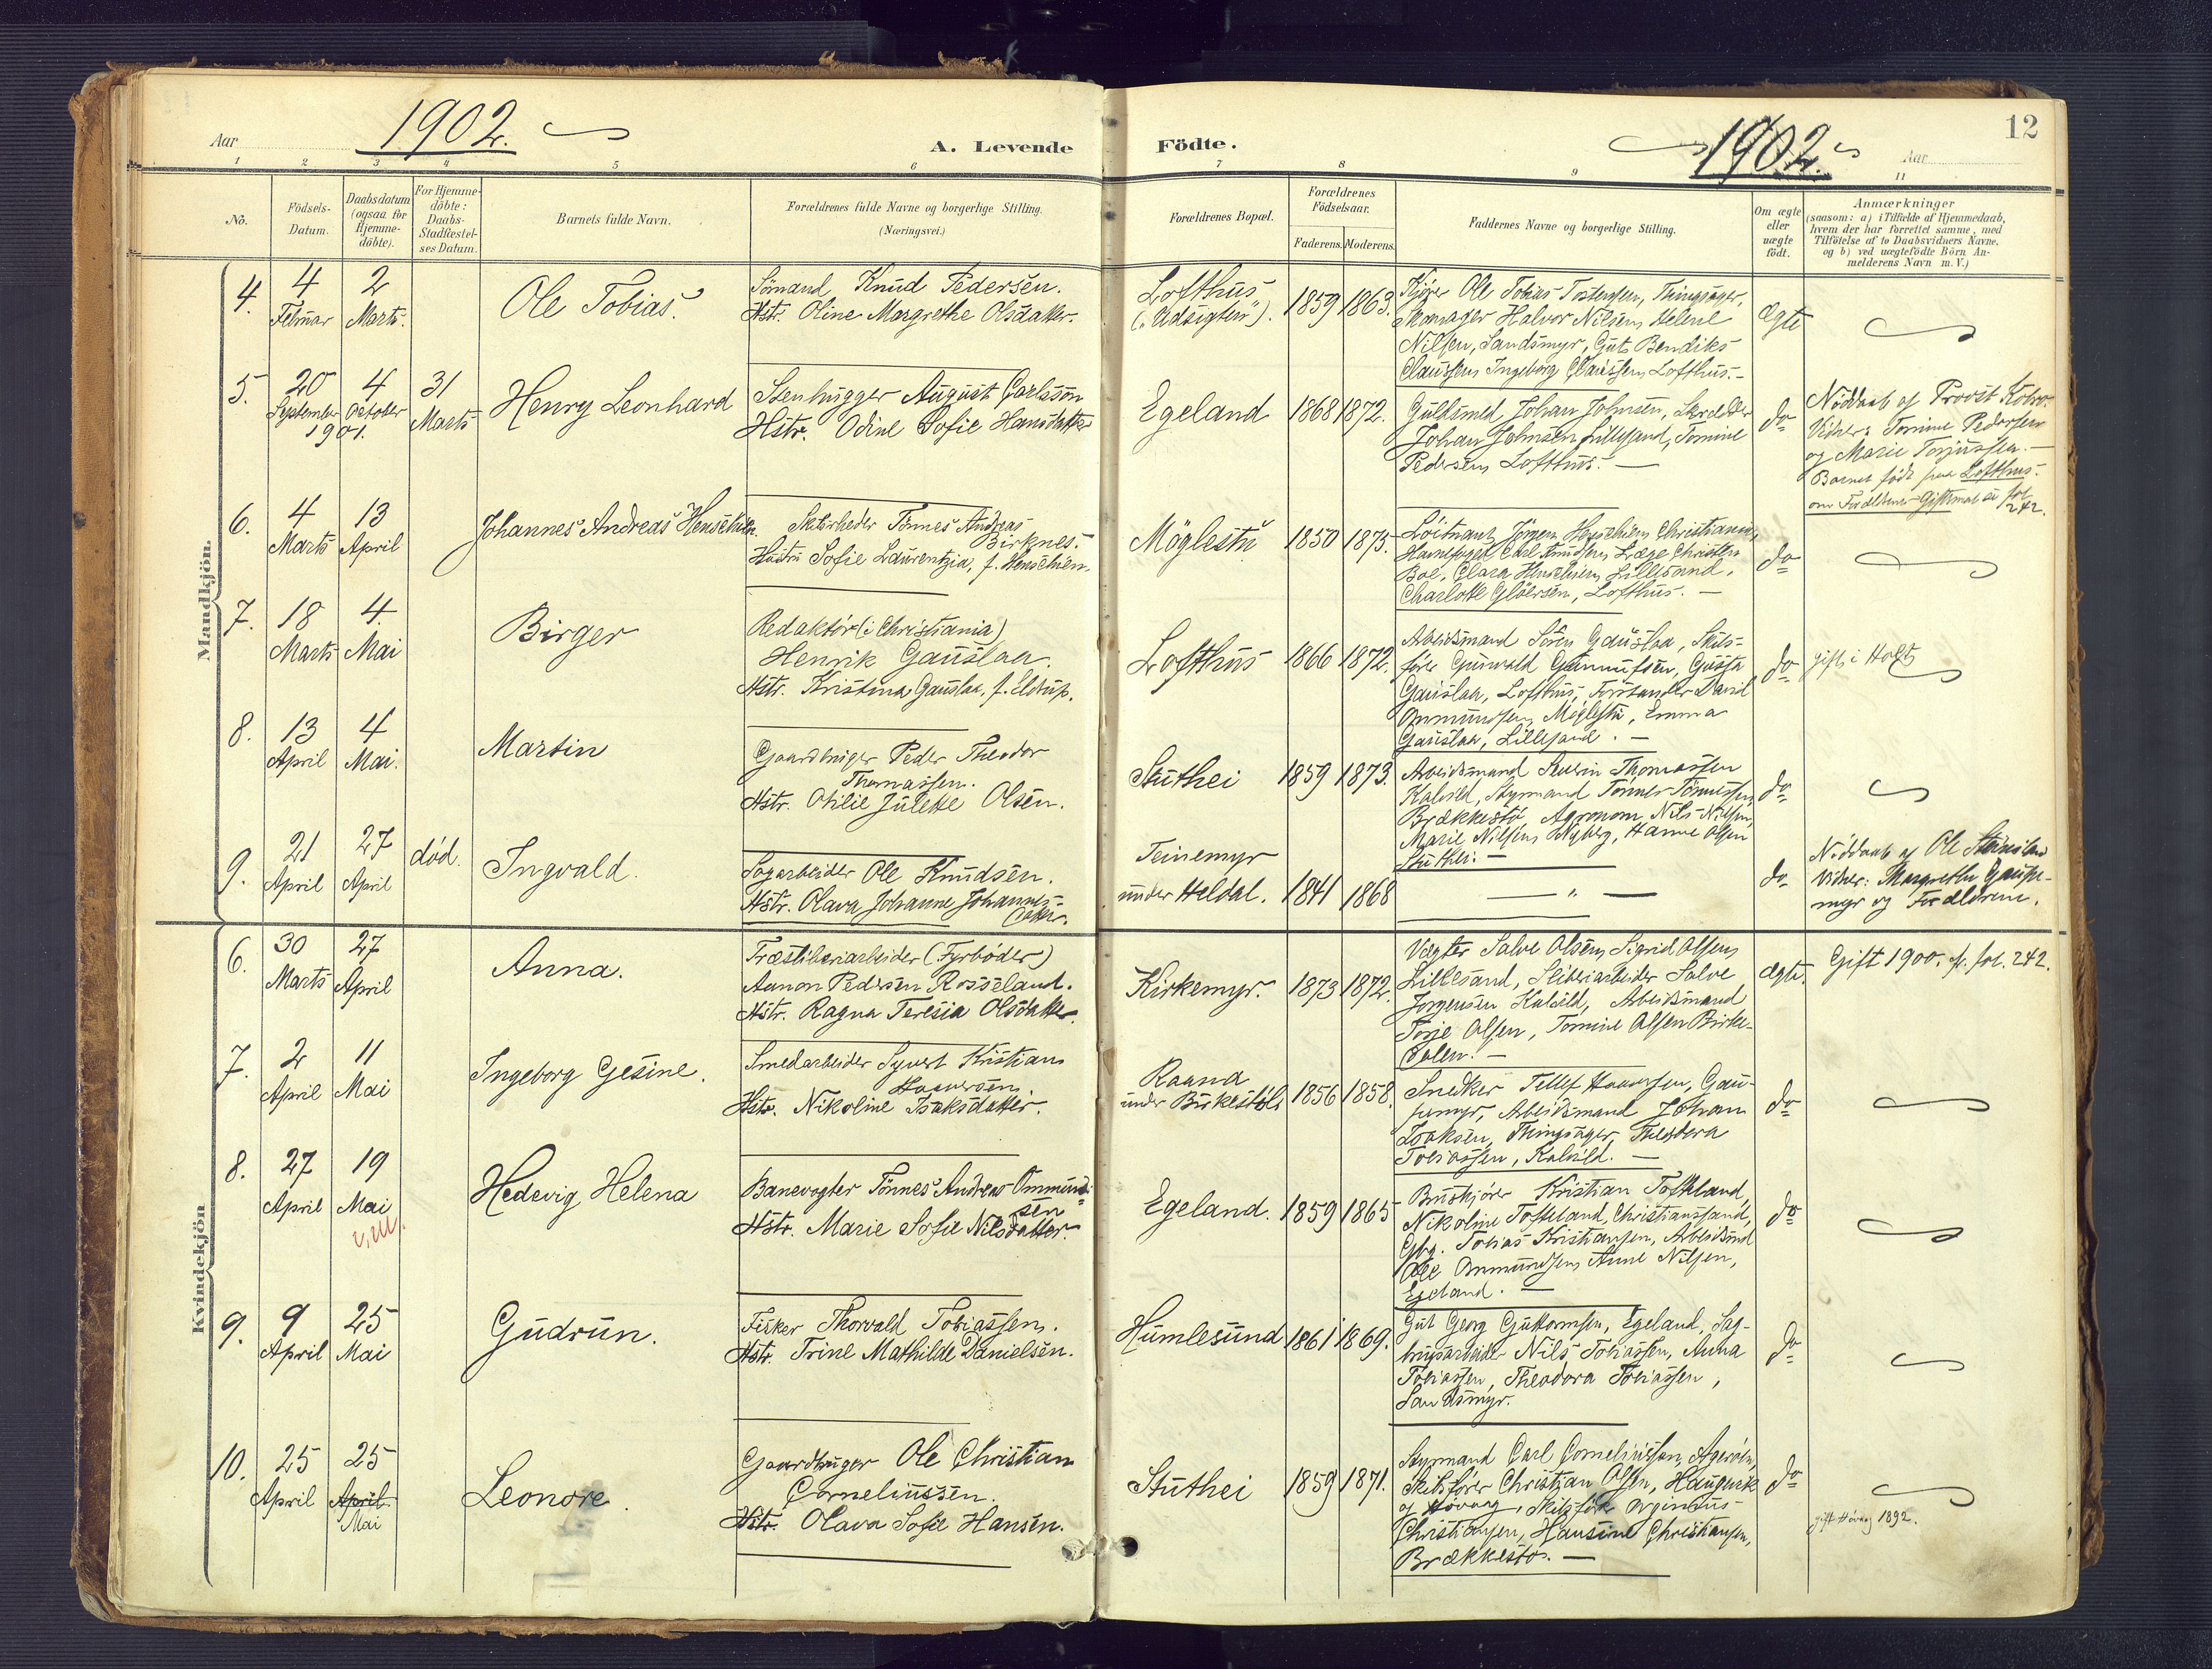 1902.
1902.
12
Aar
A. Levende
Födte.
Aar
1 2 3 4 5 6 7 8 9 11
No.
Födsels-
Datum.
Daabsdatum
(ogsaa for
Hjemme-
döbte).
For Hjemme-
döbte:
Daabs-
Stadfæstel-
ses Datum.
Barnets fulde Navn.
Forældrenes fulde Navne og borgerlige Stilling.
(Næringsvei.)
Forældrenes Bopæl.
Forældrenes
Födselsaar.
Faderens. Moderens.
Faddernes Navne og borgerlige Stilling.
Om ægte
eller
uægte
födt.
Anmærkninger
(saasom: a) i Tilfælde af Hjemmedaab,
hvem der har forrettet samme, med
Tilföielse af to Daabsvidners Navne,
og b) ved uægtefödte Börn An-
melderens Navn m. V.)
Mandkjön.
4.
4
Februar
2
Marts.
Ole Tobias.
Sömand Knud Pedersen.
Hstr. Oline Margrethe Olsdatter.
Lofthus
("Udsigten").
1859 1863.
Kjører Ole Tobias Tostensen, Thingsager,
Skomager Halvor Nilsen, Helene
Nilsen, Sandsmyr, Gut Bendiks
Claussen, Ingeborg Claussen, Lofthus. —
Ægte
5.
20
September
4
October
1901.
31
Marts
Henry Leonhard
Stenhugger August Carlsson
Hstr. Odine Sofie Hansdatter
Egeland
1868 1872.
Guldsmed Johan Johnsen, Skredder
Johan Johnsen, Lillesand, Tomine
Pedersen, Lofthus. —
do
Nöddaab af Provst
Vidner: Tomine Pedersen
og Marie Torjussen. —
Barnet født paa Lofthus.
om Forældrenes Giftermaal se fol
242.
6.
4
Marts
13
April
Johannes Andreas Henschien.
Skibsreder Tönnes Andreas
Birknes.
Hustru Sofie Laurentzia, f. Henschien.
Möglestu
1850 1875.
Löitnant Jörgen Henschien, Christiania,
Havnefoged Carl Knudsen, Læge Christen
Boe, Clara Henschien, Lillesand,
Charlotte Glöersen, Lofthus. —
do
7.
18
Marts
4.
Mai
Birger
Redaktör (i Christiania)
Henrik Gauslaa.
Hstr. Kristina Gauslaa, f. Eldrup.
Lofthus
1866 1872.
Arbeidsmand Sören Gauslaa, Skibs-
förer Gunvald Gunnufsen, Gusta
Gauslaa, Lofthus, Forstander David
Ommundsen, Möglestu, Emma
Gauslaa, Lillesand. —
do
gift i Holt
8.
13
April
4
Mai.
Martin
Gaardbruger Peder Theodor
Thomassen.
Hstr. Otilie Julette Olsen.
Stuthei
1859 1873.
Arbeidsmand Severin Thomassen
Kalvild, Styrmand Tönnes Tönnessen,
Brækkestö, Agronom Nils Nilsen,
Marie Nilsen, Nyberg, Hanne Olsen
Stuthei. —
do
9.
21
April
27
April
död.
Ingvald.
Sagarbeider Ole Knudsen.
Hstr. Olava Johanne Johannes-
datter.
Teinemyr
under Heldal.
1841 1868
— " —
do
Nöddaab af Ole
Vidner: Margrethe Gaupe-
myr og Forældrene.
Kvindekjön
6.
30
Marts
27
April
Anna.
Træsliberiarbeider (Fyrböder)
Aanon Pedersen Rosseland.
Hstr. Ragna Teresia Olsdatter.
Kirkemyr.
1873 1872.
Vægter Salve Olsen, Sigrid Olsen,
Lillesand, Sliberiarbeider Salve
Jörgensen Kalvild, Arbeidsmand
Torje Olsen, Tomine Olsen Birke-
dalen. —
ægte.
Gift 1900. cfr. fol. 242.
7.
2
April
11
Mai
Ingeborg Gesine.
Smedarbeider Syvert Kristian
Haaversen.
Hstr. Nikoline Isaksdatter.
Raana
under Birkestöl
1856 1858.
Snedker Tellef Haaversen, Gau-
pemyr, Arbeidsmand Johan
Isaksen, Thingsager, Theodora
Tobiassen, Kalvild. —
do
8.
27
April
19
Mai
Hedevig Helena
Banevogter Tönnes Andreas Ommund-
sen
Hstr. Marie Sofie Nilsdatter.
Egeland.
1859 1865
Kristian Tofteland,
Nikoline Tofteland, Christianssand,
Gbr. Tobias Kristiansen, Arbeidsmd
Ole Ommundsen, Anne Nilsen,
Egeland. —
do
9.
9
April
25
Mai
Gudrun.
Fisker Thorvald Tobiassen.
Hstr. Trine Mathilde Danielsen.
Humlesund
1861 1869.
Gut Georg Guttormsen, Egeland, Sag-
brugsarbeider Nils Tobiassen, Anna
Tobiassen, Theodora Tobiassen,
Sandsmyr.
do
10.
25
April
25
April
Mai
Leonore.
Gaardbruger Ole Christian
Corneliussen.
Hstr. Olava Sofie Hansen.
Stuthei
1859 1871.
Styrmand Carl Corneliussen, Ageröen,
Skibsförer Christian Olsen, Haugevik
af Hövaag, Skibsförer Orginius
Christiansen, Hansine Christiansen,
Brækkestö. —
do
gift Hövaag 1892.